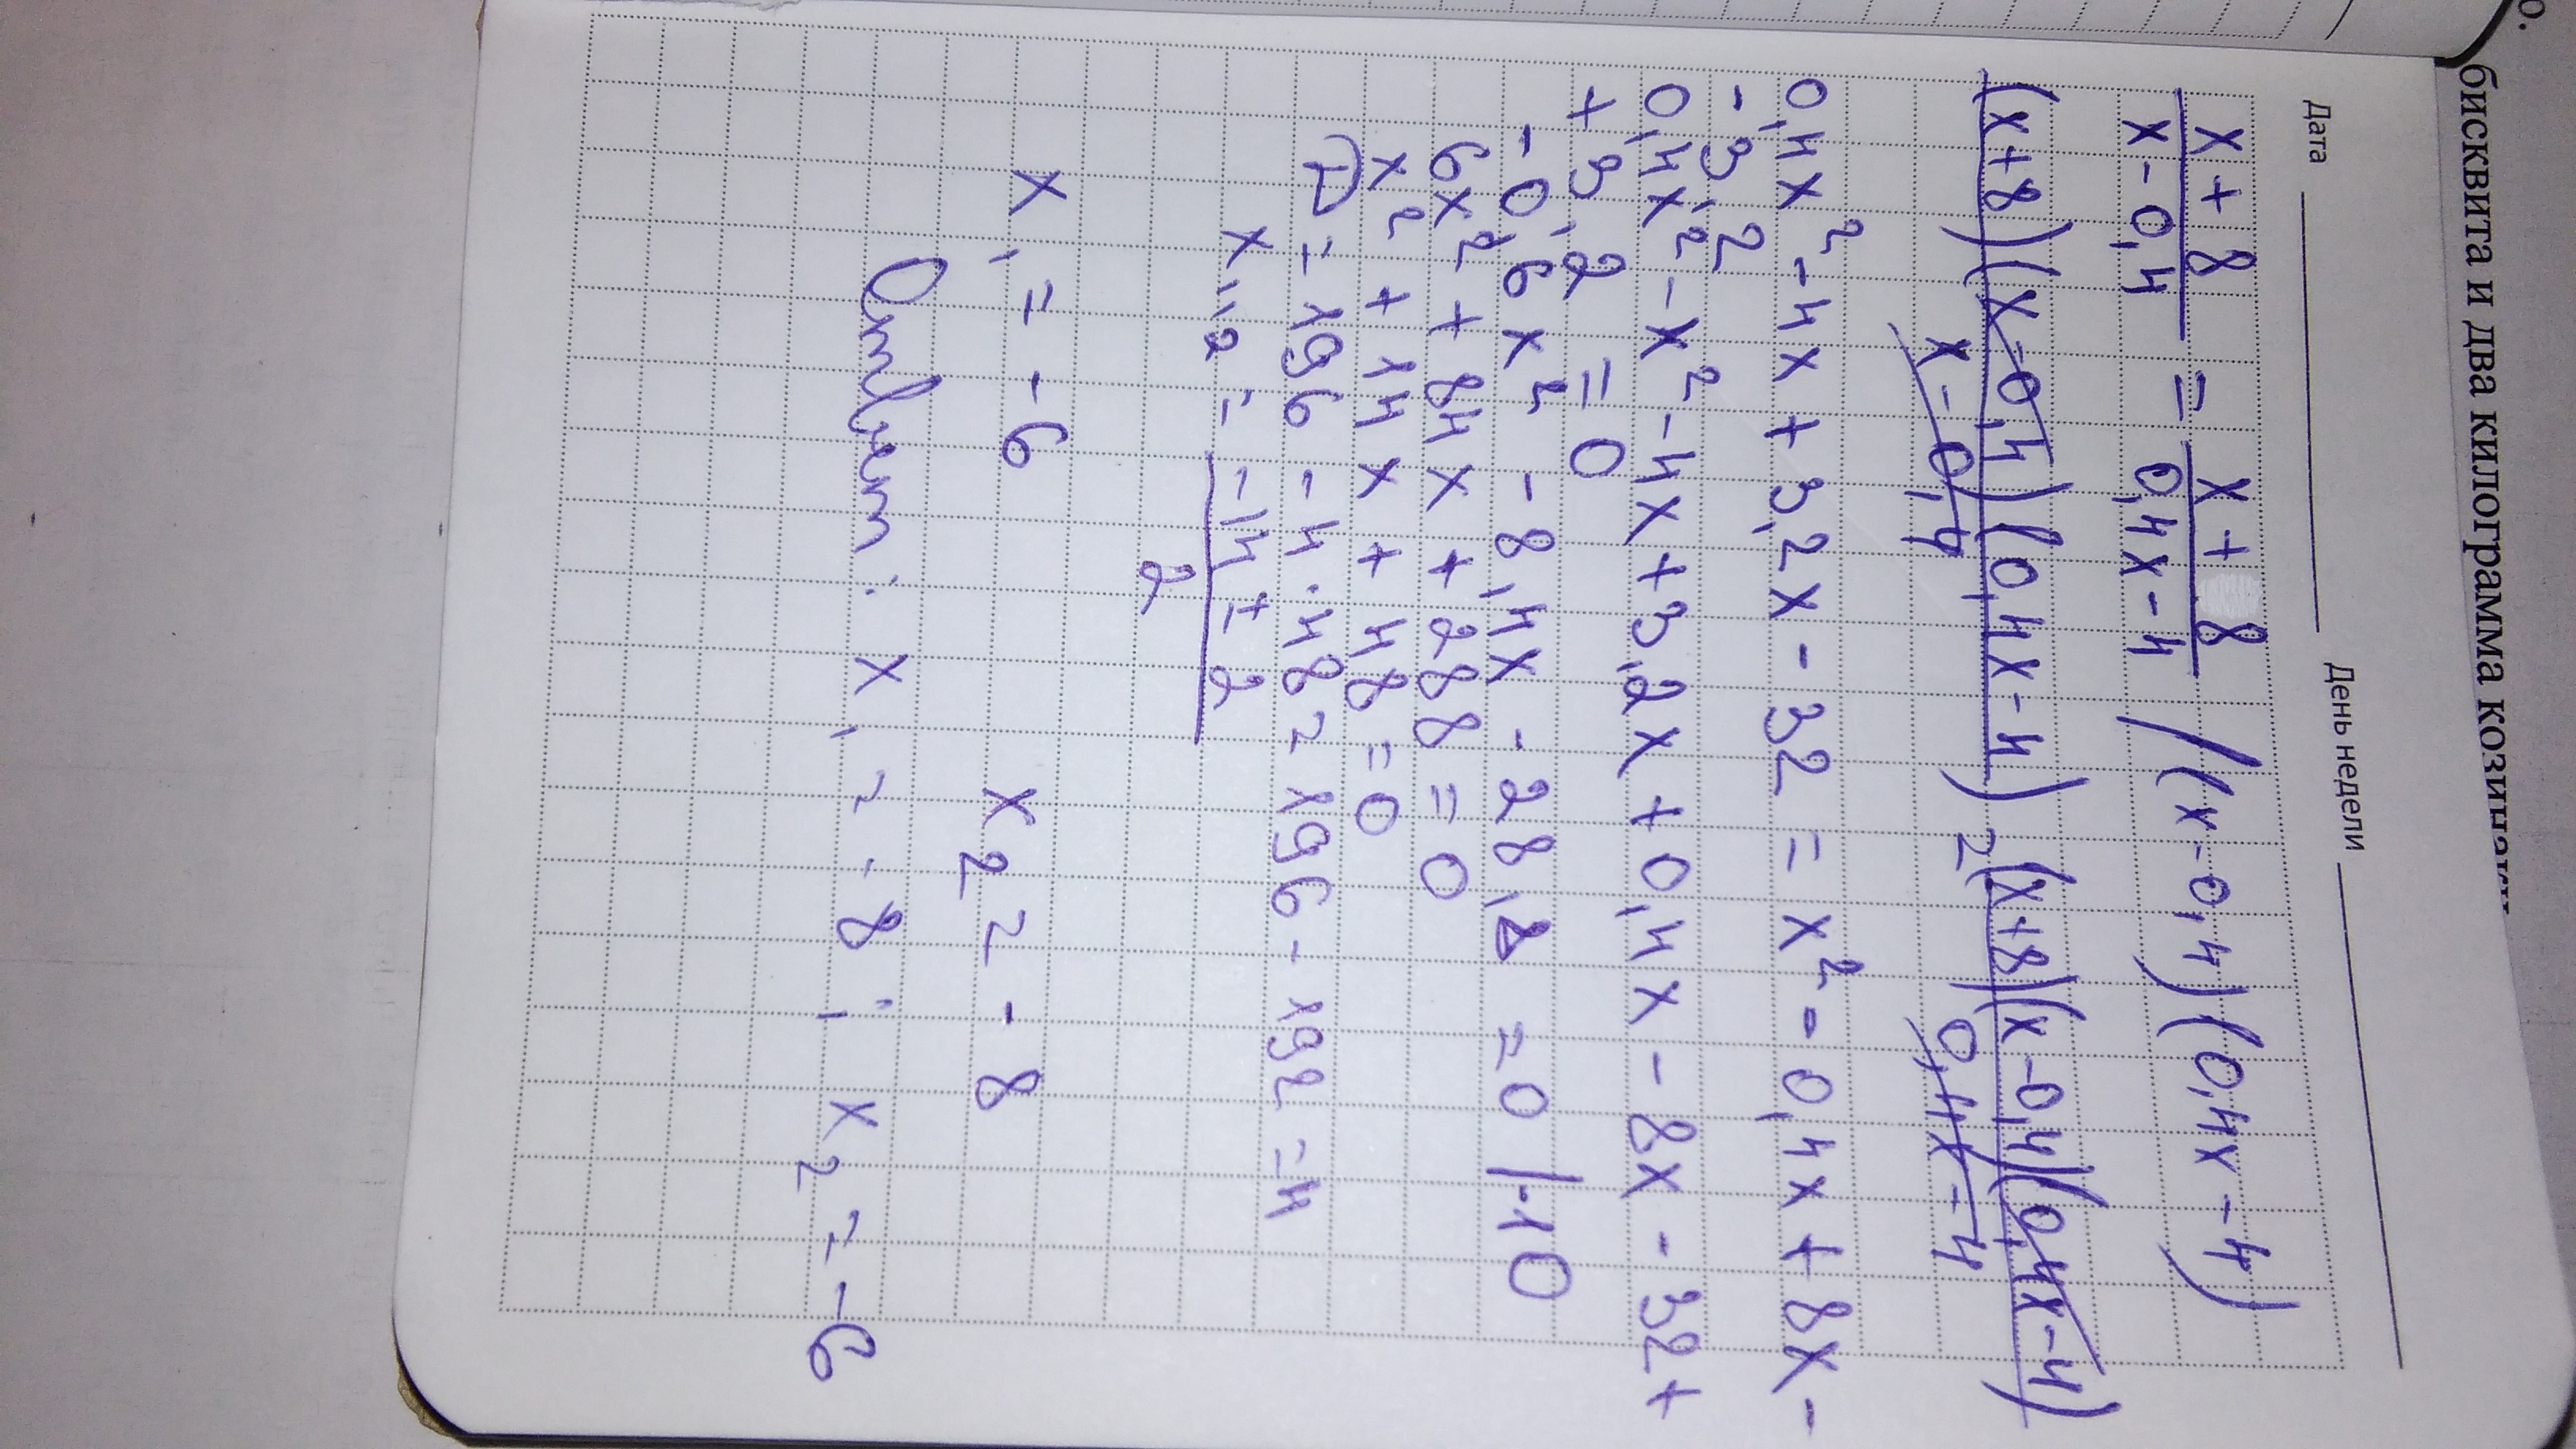 о.
бисквита и два килограмма козинаки
Дата День недели
x + 8 / x - 0,4 = x + 8 / 0,4x - 4 / (x - 0,4)(0,4x - 4)
(x+8)(x-0,4)(0,4x-4) / x - 0,4 = (x+8)(x-0,4)(0,4x-4) / 0,4x - 4
0,4x² - 4x + 3,2x - 32 = x² - 0,4x + 8x -
- 3,2
0,4x² - x² - 4x + 3,2x + 0,4x - 8x - 32 +
+ 3,2 = 0
- 0,6x² - 8,4x - 28,8 = 0 |·10
6x² + 84x + 288 = 0
x² + 14x + 48 = 0
D = 196 - 4·48 = 196 - 192 = 4
x₁,₂ = -14 ± 2 / 2
x₁ = -6 x₂ = -8
Ответ: x₁ = -8; x₂ = -6